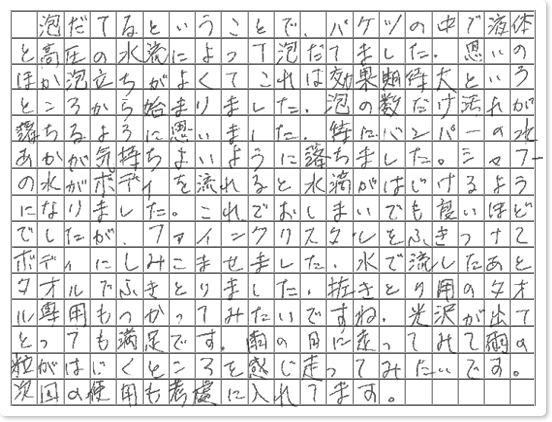 泡だてるということで、バケツの中で液体
と高圧の水流によって泡だてました。思いの
ほか泡立ちがよくてこれは効果期待大という
ところから始まりました。泡の数だけ汚れが
落ちるように思いました。特にバンパーの水
あかが気持ちよいように落ちました。シャワー
の水がボディを流れると水滴がはじけるよう
になりました。これでおしまいでも良いほど
でしたが、ファインクリスタルをふきつけて
ボディにしみこませました。水で流したあと
タオルでふきとりました。拭きとり用のタオ
ル専用もつかってみたいですね。光沢が出て
とっても満足です。雨の日に走ってみて雨の
粒がはじくところを感じ走ってみたいです。
次回の使用も考慮に入れてます。